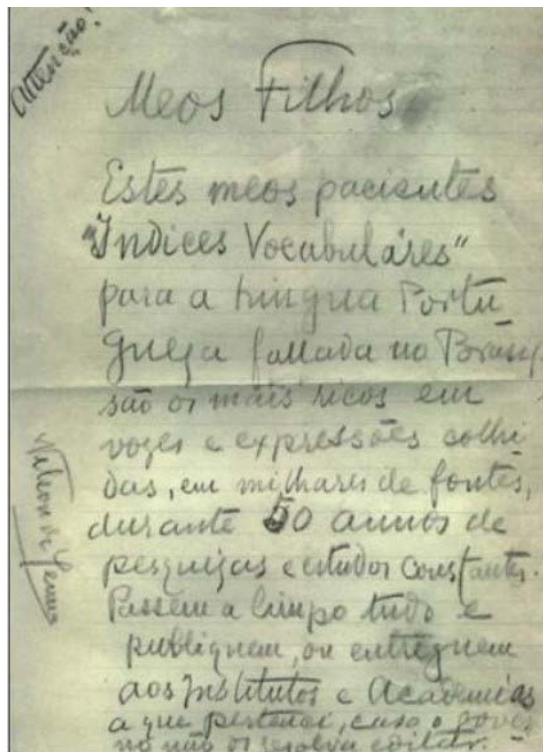 Attenção!
Meos Filhos
Estes meos pacientes
"Indices Vocabuláres"
para a Lingua Portu
gueza fallada no Brasil,
são os mais ricos em
vozes e expressões colhi
das, em milhares de fontes,
durante 50 annos de
pesquizas e estudos constantes.
Passem a limpo tudo e
publiquem, ou entreguem
aos Institutos e Academias
a que pertenci, caso o gover
no não os resolva editar
Nelson de Senna